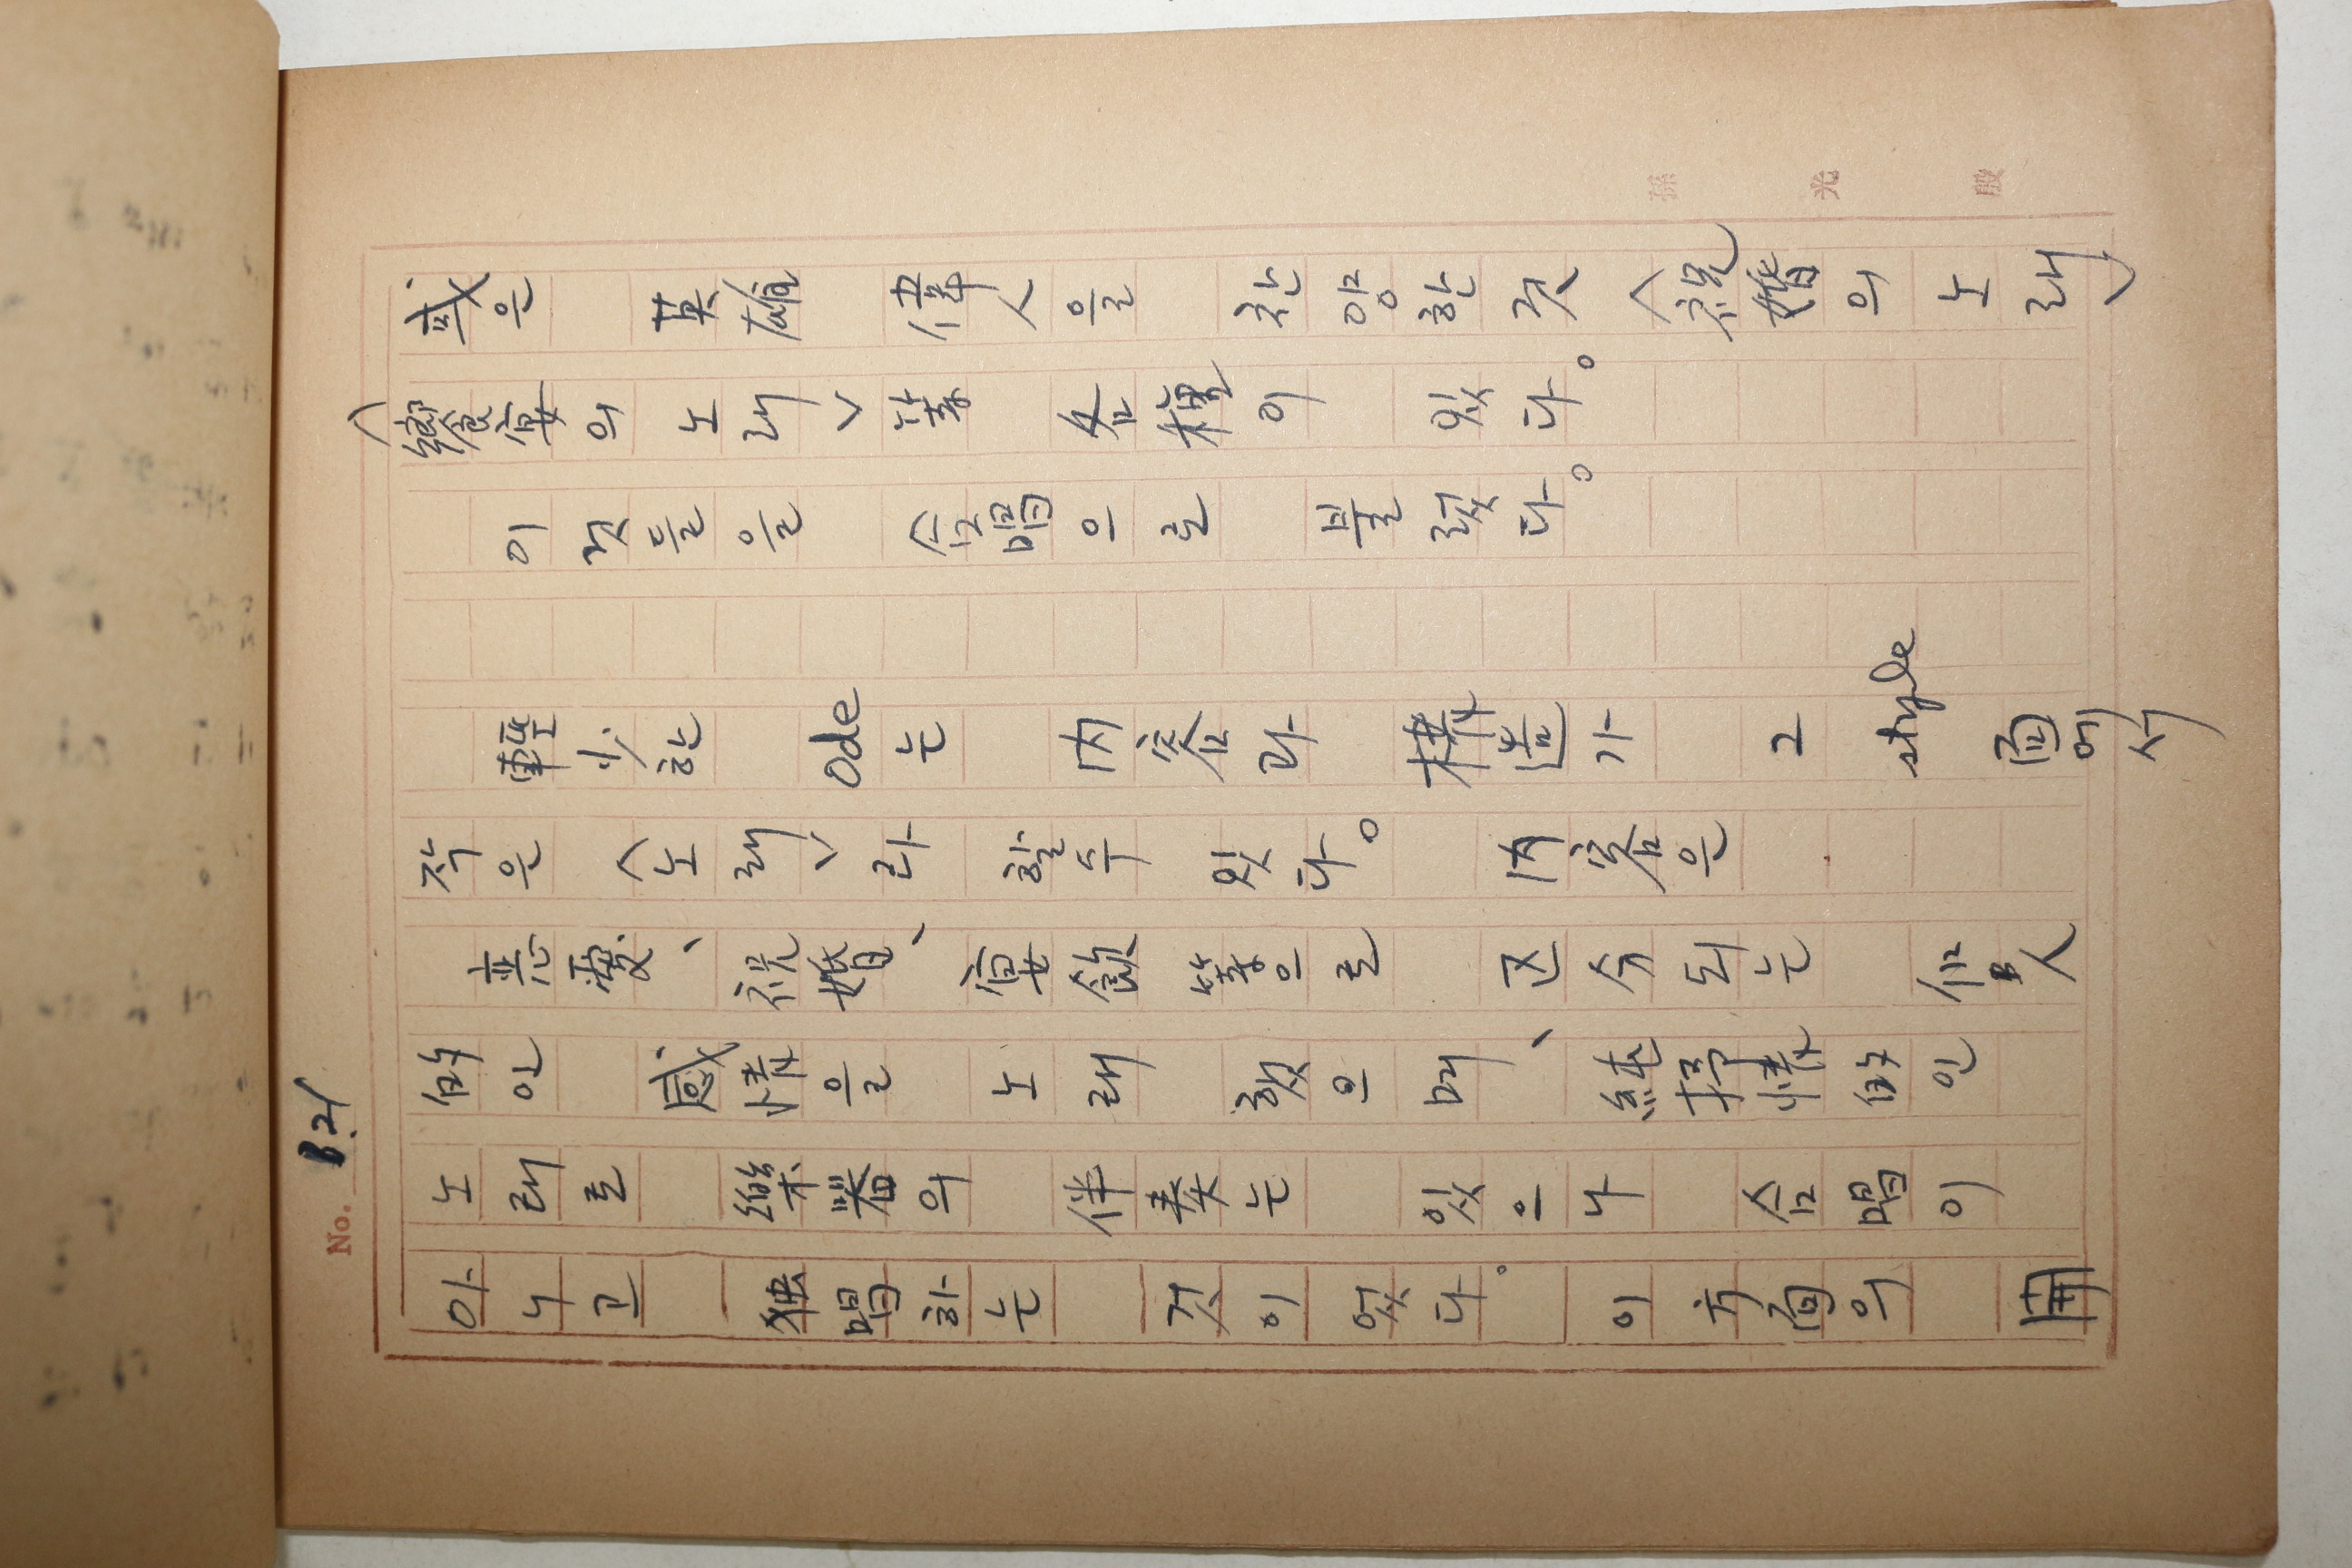 No. B.21
或은 英雄 偉人을 찬양한것 <祝婚의노래>
<饗宴의노래>等 各種이 있다。
이것들을 合唱으로 불렀다。
輕少한 ode는 內容과 構造가 그 style 面에서
작은 <노래>라 할수 있다。 內容은
恋愛、祝婚、宴飮 等으로 区分되는 個人
的인 感情을 노래 했으며、純抒情的인
노래로 樂器의 伴奏는 있으나 合唱이
아니고 独唱하는 것이었다。 이方面의 開
孫 光 殷